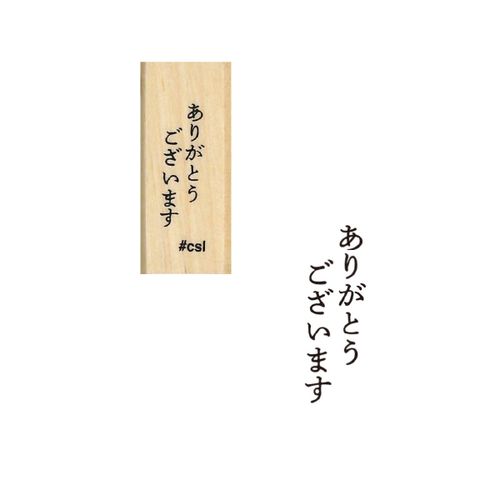 ありがとう
ございます
#csl
ありがとう
ございます